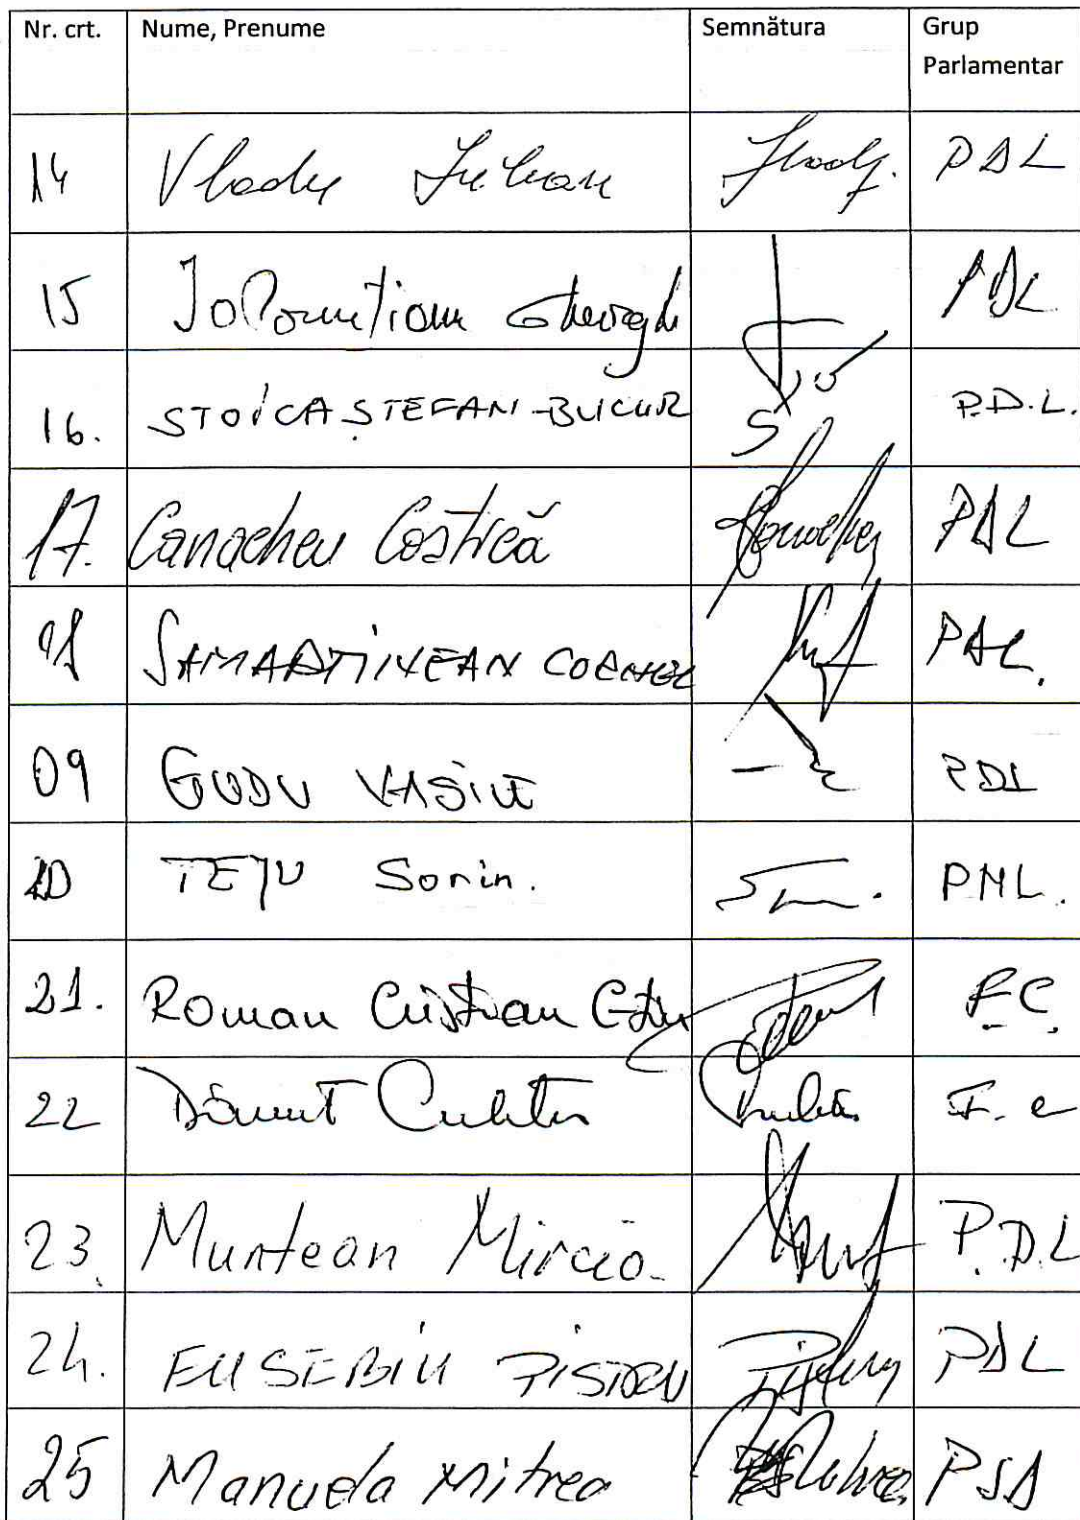 Nr. crt. Nume, Prenume Semnătura Grup
Parlamentar
14 Vladu Iulian PDL
15 Ialomițianu Gheorghe PDL
16. STOICA ȘTEFAN-BUCUR P.D.L.
17. Canacheu Costică PDL
SAMARTINEAN CORNEL PDL.
09 GUDU VASILE PDL
20 TEJU Sorin. PNL.
21. Roman Cristian F.C.
22 F.C
23. Muntean Mircea P.D.L
24. EUSEBIU PISTRU PDL
25 Manuela Mitrea PSD